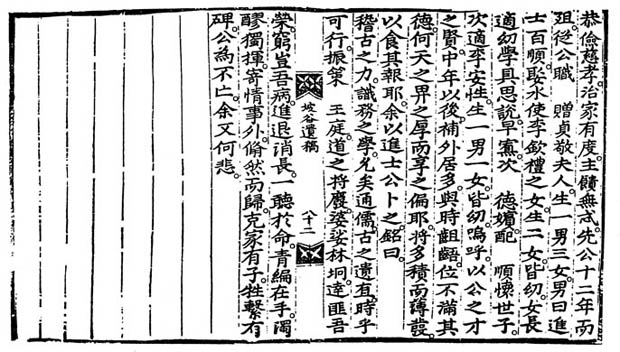 恭儉慈孝治家有度主饋無忒先公十二年而
殂從公職 贈貞敬夫人生一男三女男曰進
士百順娶水使李欽禮之女生二女皆幼女長
適幼學具思說早寡次 德嬪配 順懷世子
次適李安性生一男一女皆幼嗚呼以公之才
之賢中年以後補外居多與時齟齬位不滿其
德何天之畀之厚而享之偏耶將多積而薄發
以食其報耶余以進士公卜之銘曰
稽古之力識務之學允矣通儒古之遺直時乎
可行振策 王庭道之將廢婆娑林坰達匪吾
坡谷遺稿 八十二
榮窮豈吾病進退消長一聽於命靑編在手濁
醪獨揮寄情事外翛然而歸克家有子牲繫有
碑公為不亡余又何悲